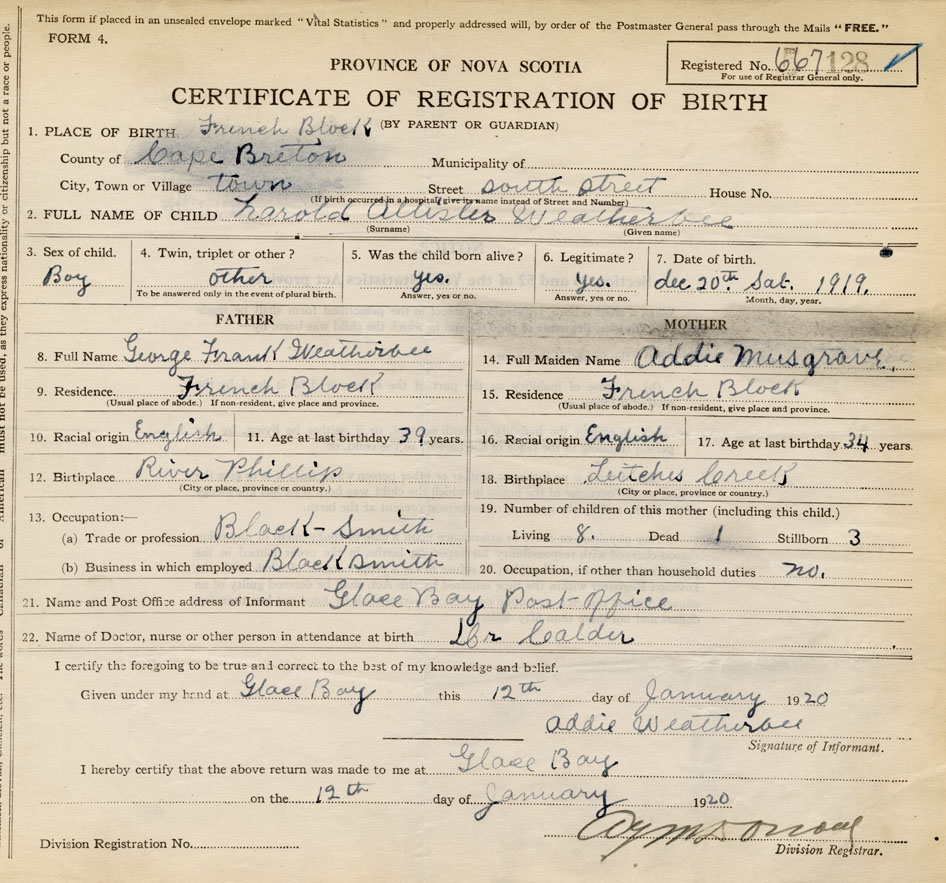 This form if placed in an unsealed envelope marked "Vital Statistics" and properly addressed will, by order of the Postmaster General pass through the Mails "FREE."
FORM 4.
Registered No. 667128
For use of Registrar General only.
PROVINCE OF NOVA SCOTIA
CERTIFICATE OF REGISTRATION OF BIRTH
(BY PARENT OR GUARDIAN)
1. PLACE OF BIRTH French Block
County of Cape Breton Municipality of
City, Town or Village town Street south street House No.
(If birth occurred in a hospital give its name instead of Street and Number)
2. FULL NAME OF CHILD Harold Allister Weatherbee
(Surname) (Given name)
3. Sex of child. 4. Twin, triplet or other? 5. Was the child born alive? 6. Legitimate? 7. Date of birth.
Boy other yes. yes. dec 20th Sat. 1919.
To be answered only in the event of plural birth. Answer, yes or no. Answer, yes or no. Month, day, year.
FATHER
8. Full Name George Frank Weatherbee
9. Residence French Block
(Usual place of abode.) If non-resident, give place and province.
10. Racial origin English 11. Age at last birthday 39 years.
12. Birthplace River Phillip
(City or place, province or country.)
13. Occupation:—
(a) Trade or profession Black-Smith
(b) Business in which employed Black smith
MOTHER
14. Full Maiden Name Addie Musgrave.
15. Residence French Block
(Usual place of abode.) If non-resident, give place and province.
16. Racial origin English 17. Age at last birthday 34 years.
18. Birthplace Leitches Creek
(City or place, province or country.)
19. Number of children of this mother (including this child.)
Living 8. Dead 1 Stillborn 3
20. Occupation, if other than household duties no.
21. Name and Post Office address of Informant Glace Bay Post-office
22. Name of Doctor, nurse or other person in attendance at birth Dr Calder
I certify the foregoing to be true and correct to the best of my knowledge and belief.
Given under my hand at Glace Bay this 12th day of January 1920
Addie Weatherbee
Signature of Informant.
I hereby certify that the above return was made to me at Glace Bay
on the 12th day of January 1920
Division Registration No.
Division Registrar.